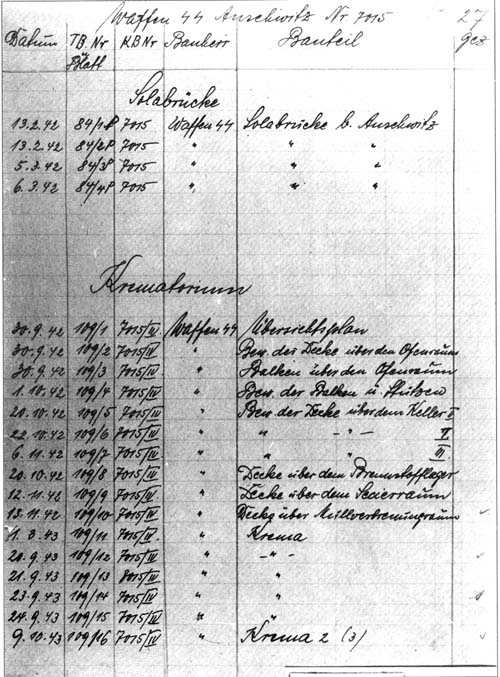 Waffen SS Auschwitz Nr 7015 27
Datum TB. Nr KB Nr Bauherr Bauteil gez
Blatt
Solabrücke
13.2.42 84/1 7015 Waffen SS Solabrücke b. Auschwitz
13.2.42 84/2 7015 " " "
5.3.42 84/3 7015 " " "
6.3.42 84/4 7015 " " "
Krematorium
30.9.42 109/1 7015/IV. Waffen SS Übersichtsplan
30.9.42 109/2 7015/IV " Bew. der Decke über den Ofenraum
30.9.42 109/3 7015/IV " Balken über den Ofenraum
1.10.42 109/4 7015/IV " Bew. der Balken u. Stützen
20.10.42 109/5 7015/IV " Bew. der Decke über dem Keller I
22.10.42 109/6 7015/IV " " - " - II
6.11.42 109/7 7015/IV " " " III.
20.10.42 109/8 7015/IV " Decke über dem Brennstofflager
12.11.42 109/9 7015/IV " Decke über dem
13.11.42 109/10 7015/IV " Decke über Müllverbrennungsraum
1.3.43 109/11 7015/IV. " Krema
20.9.43 109/12 7015/IV " - " -
21.9.43 109/13 7015/IV " "
23.9.43 109/14 7015/IV " "
24.9.43 109/15 7015/IV " "
9.10.43 109/16 7015/IV " Krema 2 (3)